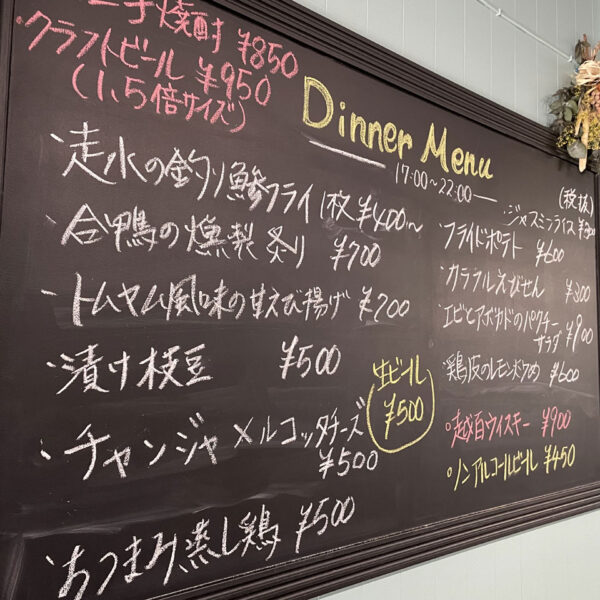 焼酎 ¥850
・クラフトビール ¥950
(1.5倍サイズ)
Dinner Menu
17:00~22:00
(税抜)
・走水の釣り鯵フライ 1枚 ¥400~
・合鴨の燻製炙り ¥700
・トムヤム風味の甘えび揚げ ¥700
・漬け枝豆 ¥500
・チャンジャ×リコッタチーズ
¥500
・おつまみ蒸し鶏 ¥500
生ビール
¥500
・ジャスミンライス
・フライドポテト ¥600
・カラフルえびせん ¥300
・エビとアボカドのパクチー
サラダ ¥900
・鶏皮のレモンポン ¥600
・越百ウイスキー ¥900
・ノンアルコールビール ¥450